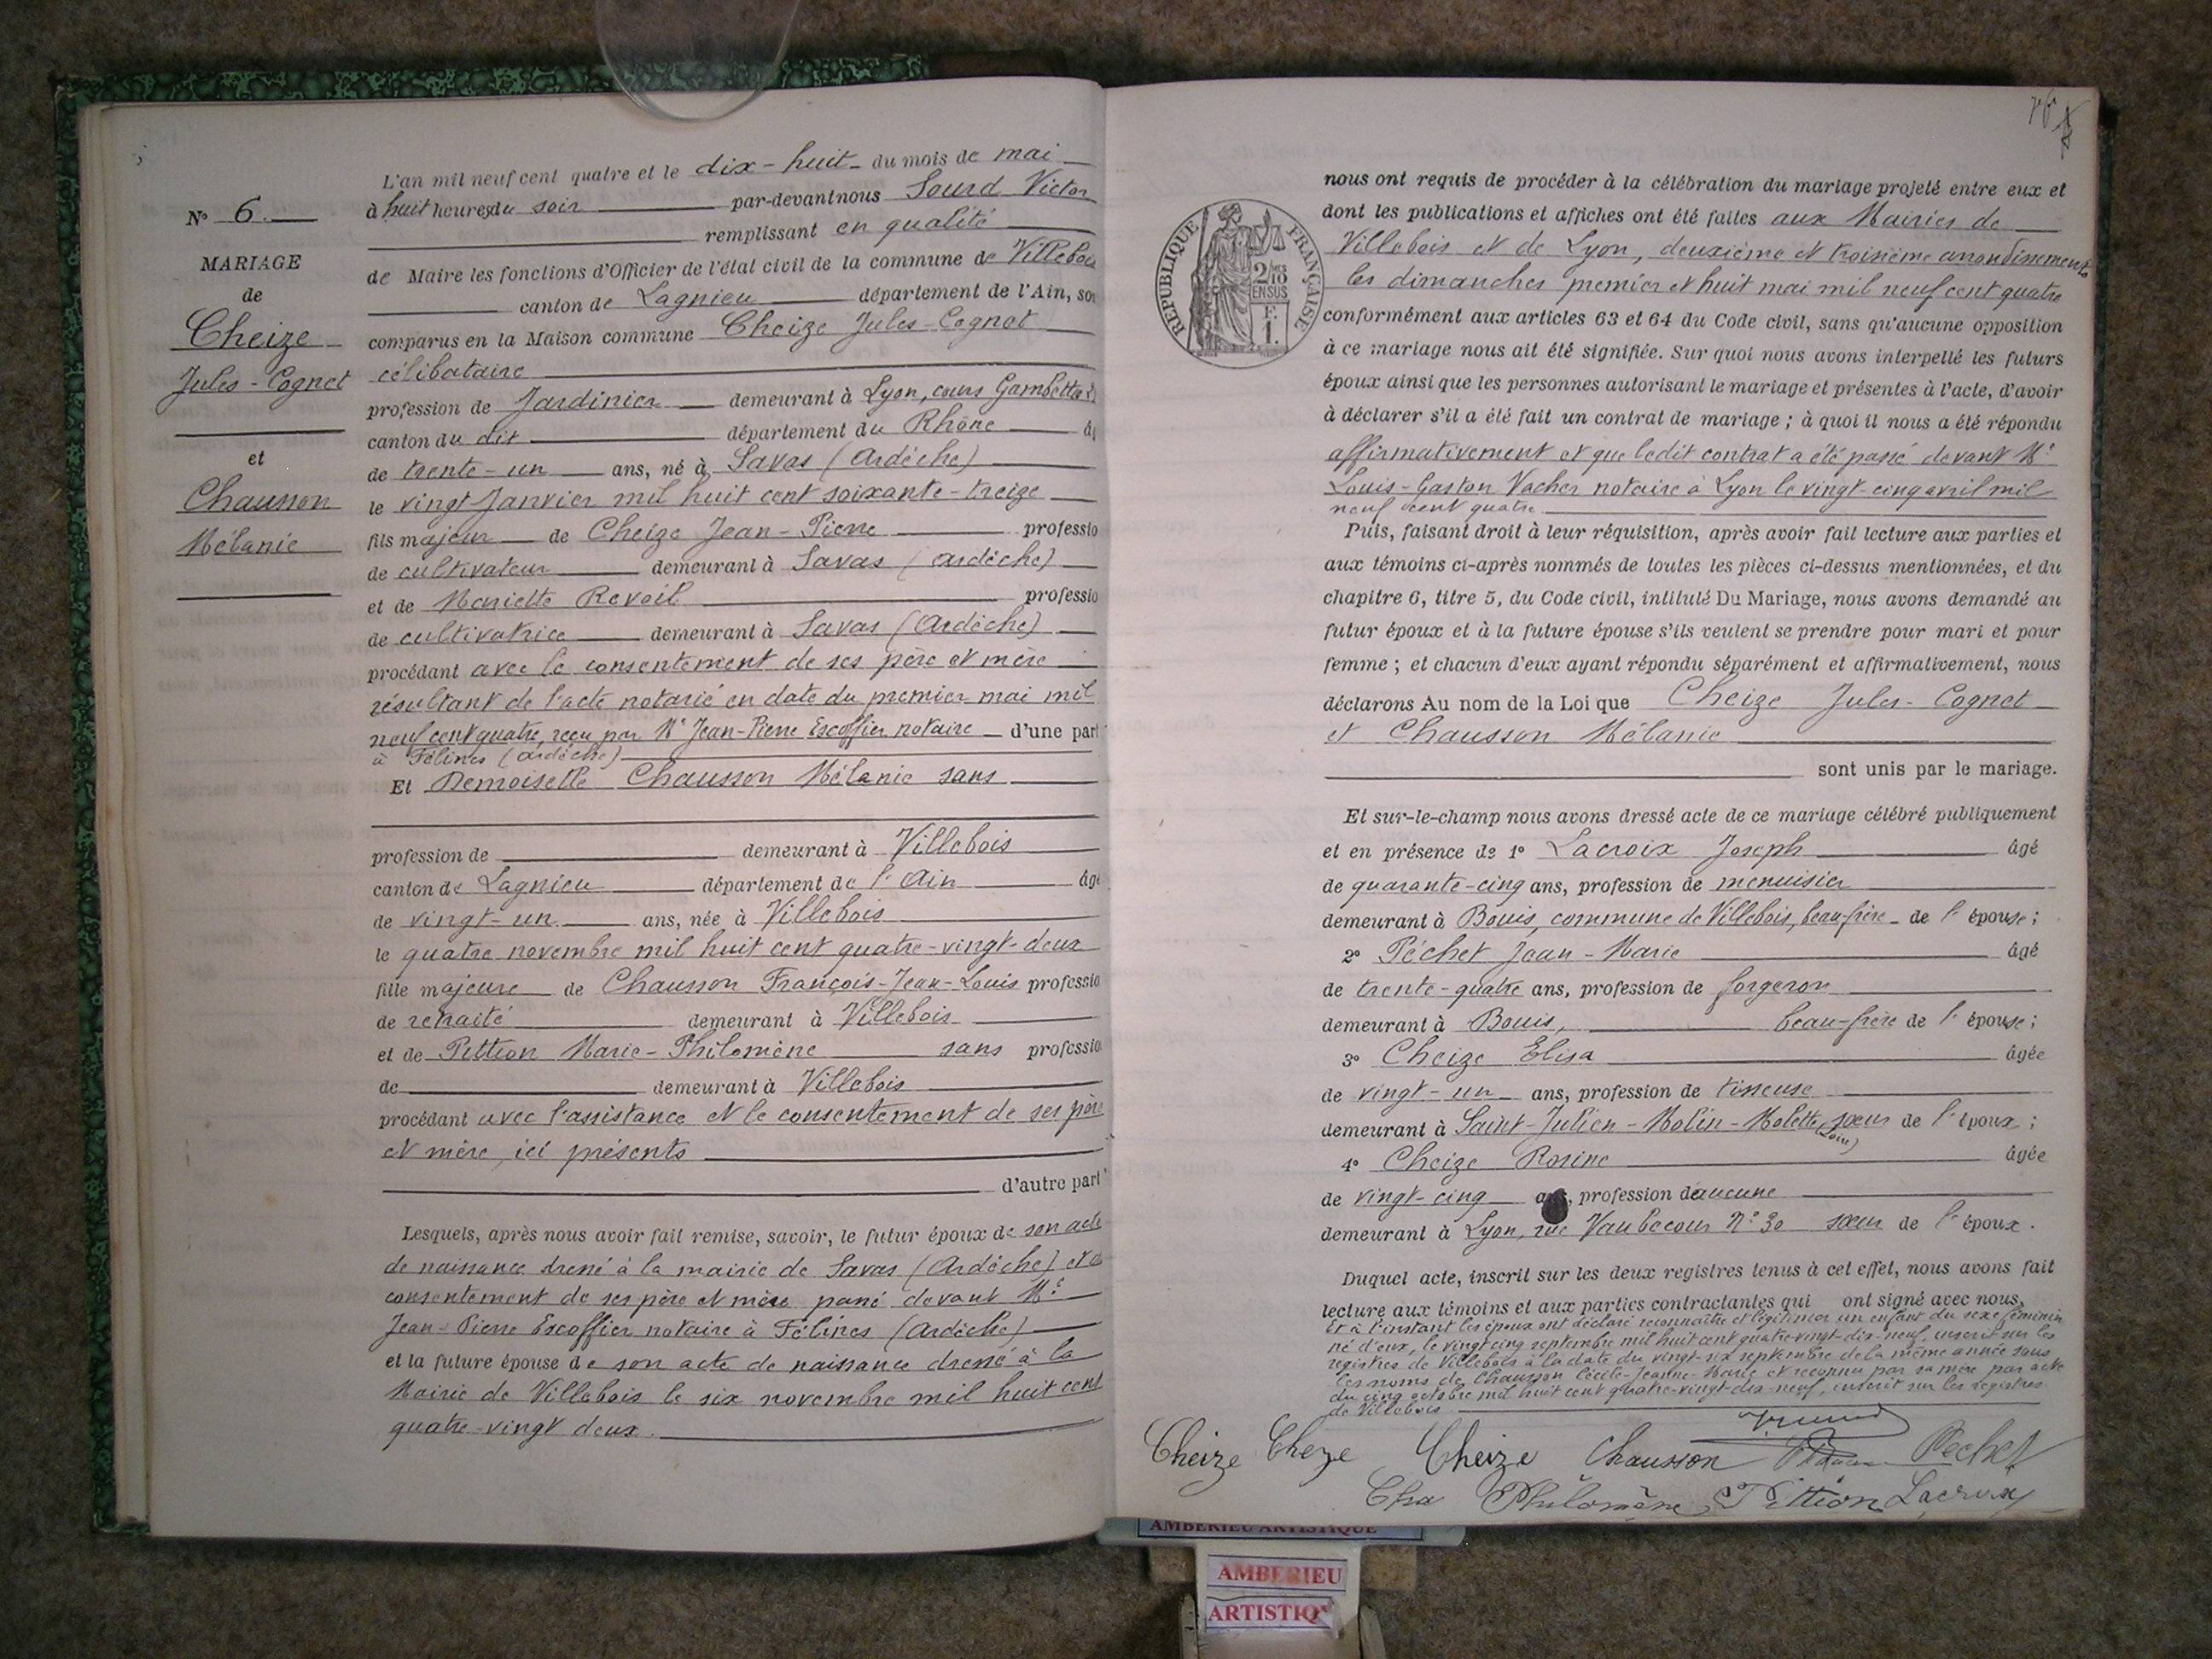 N° 6.
MARIAGE
de
Cheize
Jules-Cognet
et
Chausson
Mélanie
L'an mil neuf cent quatre et le dix-huit du mois de mai
à huit heures du soir par-devant nous Sourd Victor
remplissant en qualité
de Maire les fonctions d'Officier de l'état civil de la commune de Villebois
canton de Lagnieu département de l'Ain, son
comparus en la Maison commune Cheize Jules-Cognet
célibataire
profession de Jardinier demeurant à Lyon, cours Gambetta
canton du dit département du Rhône âg
de trente-un ans, né à Savas (Ardèche)
le vingt Janvier mil huit cent soixante-treize
fils majeur de Cheize Jean-Pierre professio
de cultivateur demeurant à Savas (Ardèche)
et de Mariette Reveil professio
de cultivatrice demeurant à Savas (Ardèche)
procédant avec le consentement de ses père et mère
résultant de l'acte notarié en date du premier mai mil
neuf cent quatre, reçu par Me Jean-Pierre Escoffier notaire d'une part
à Félines (Ardèche)
Et Demoiselle Chausson Mélanie sans
profession de demeurant à Villebois
canton de Lagnieu département de l'Ain âgé
de vingt-un ans, née à Villebois
le quatre novembre mil huit cent quatre-vingt-deux
fille majeure de Chausson François-Jean-Louis professio
de retraité demeurant à Villebois
et de Pittion Marie-Philomène sans professio
de demeurant à Villebois
procédant avec l'assistance et le consentement de ses père
et mère, ici présents
d'autre part
Lesquels, après nous avoir fait remise, savoir, le futur époux de son acte
de naissance dressé à la mairie de Savas (Ardèche) et
consentement de ses père et mère passé devant Me
Jean-Pierre Escoffier notaire à Félines (Ardèche)
et la future épouse de son acte de naissance dressé à la
Mairie de Villebois le six novembre mil huit cent
quatre-vingt deux.
RÉPUBLIQUE FRANÇAISE
2/10 EN SUS
F.
1.
nous ont requis de procéder à la célébration du mariage projeté entre eux et
dont les publications et affiches ont été faites aux Mairies de
Villebois et de Lyon, deuxième et troisième arrondissements
les dimanches premier et huit mai mil neuf cent quatre
conformément aux articles 63 et 64 du Code civil, sans qu'aucune opposition
à ce mariage nous ait été signifiée. Sur quoi nous avons interpellé les futurs
époux ainsi que les personnes autorisant le mariage et présentes à l'acte, d'avoir
à déclarer s'il a été fait un contrat de mariage ; à quoi il nous a été répondu
affirmativement et que ledit contrat a été passé devant Me
Louis-Gaston Vacher notaire à Lyon le vingt-cinq avril mil
neuf cent quatre
Puis, faisant droit à leur réquisition, après avoir fait lecture aux parties et
aux témoins ci-après nommés de toutes les pièces ci-dessus mentionnées, et du
chapitre 6, titre 5, du Code civil, intitulé Du Mariage, nous avons demandé au
futur époux et à la future épouse s'ils veulent se prendre pour mari et pour
femme ; et chacun d'eux ayant répondu séparément et affirmativement, nous
déclarons Au nom de la Loi que Cheize Jules-Cognet
et Chausson Mélanie
sont unis par le mariage.
Et sur-le-champ nous avons dressé acte de ce mariage célébré publiquement
et en présence de 1° Lacroix Joseph âgé
de quarante-cinq ans, profession de menuisier
demeurant à Bouis, commune de Villebois, beau-frère de l'épouse ;
2° Péchet Jean-Marie âgé
de trente-quatre ans, profession de forgeron
demeurant à Bouis, beau-frère de l'épouse ;
3° Cheize Elisa âgée
de vingt-un ans, profession de tisseuse
demeurant à Saint-Julien-Molin-Molette (Loire) sœur de l'époux ;
4° Cheize Rosine âgée
de vingt-cinq ans, profession d'aucune
demeurant à Lyon, rue Vaubecour N° 30 sœur de l'époux.
Duquel acte, inscrit sur les deux registres tenus à cet effet, nous avons fait
lecture aux témoins et aux parties contractantes qui ont signé avec nous.
Et à l'instant les époux ont déclaré reconnaître et légitimer un enfant du sexe féminin
né d'eux, le vingt cinq septembre mil huit cent quatre-vingt-dix-neuf, inscrit sur les
registres de Villebois à la date du vingt-six septembre de la même année sous
les noms de Chausson Cécile-Jeanne-Marie et reconnu par sa mère par acte
du cinq octobre mil huit cent quatre-vingt-dix-neuf, inscrit sur les registres
de Villebois
Cheize Cheze Cheize Chausson Pechet
Cha Philomène Pittion Lacroix
AMBERIEU ARTISTIQUE
AMBERIEU
ARTISTIQ